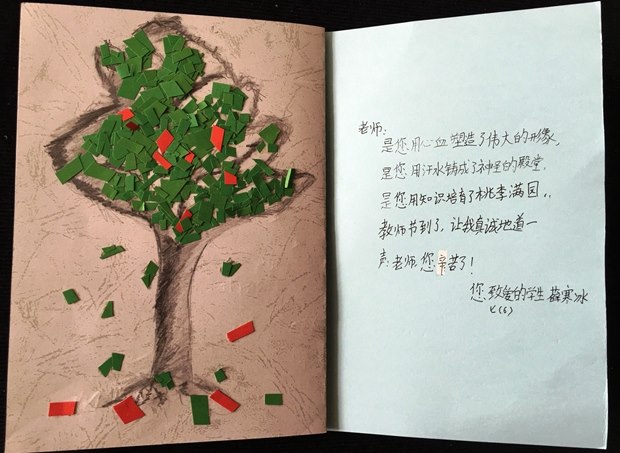 老师:
是您用心血塑造了伟大的形象,
是您用汗水铸成了神圣的殿堂,
是您用知识培育了桃李满园,
教师节到了,让我真诚地道一
声:老师,您辛苦了!
您致爱的学生 薛寒冰
七(6)